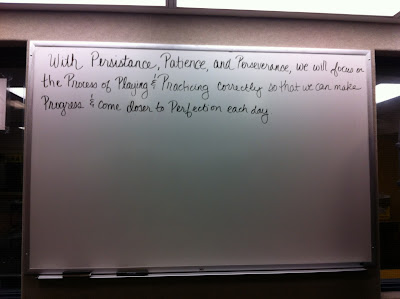 With Persistance, Patience, and Perseverance, we will focus on
the Process of Playing & Practicing correctly so that we can make
Progress & come closer to Perfection each day